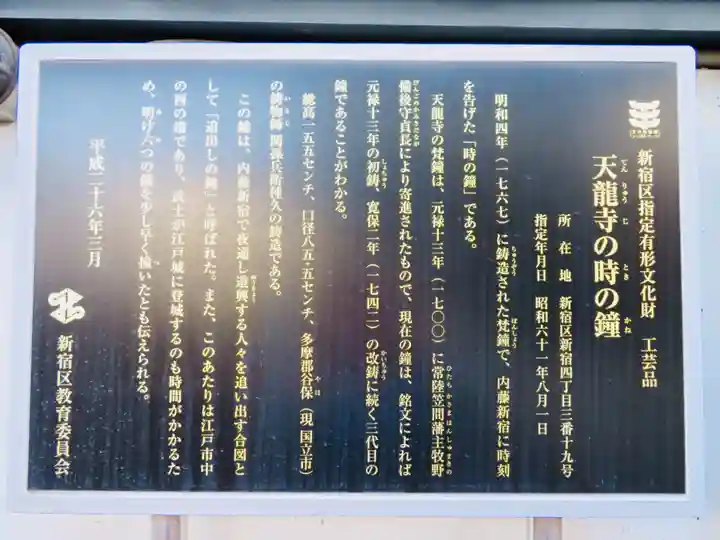 新宿区指定有形文化財　工芸品
天龍寺の時の鐘
てんりゅうじ　とき　かね
所在地　新宿区新宿四丁目三番十九号
指定年月日　昭和六十一年八月一日
明和四年（一七六七）に鋳造された梵鐘で、内藤新宿に時刻
ちゅうぞう　ぼんしょう
を告げた「時の鐘」である。
天龍寺の梵鐘は、元禄十三年（一七〇〇）に常陸笠間藩主牧野
ひたちかさまはんしゅまきの
備後守貞長により寄進されたもので、現在の鐘は、銘文によれば
びんごのかみさだなが
元禄十三年の初鋳、寛保二年（一七四二）の改鋳に続く三代目の
しょちゅう　かいちゅう
鐘であることがわかる。
総高一五五センチ、口径八五・五センチ、多摩郡谷保（現 国立市）
やほ
の鋳物師 関孫兵衛種久の鋳造である。
この鐘は、内藤新宿で夜通し遊興する人々を追い出す合図と
ゆうきょう
して「追出しの鐘」と呼ばれた。また、このあたりは江戸市中
の西の端であり、武士が江戸城に登城するのも時間がかかるた
め、明け六つの鐘を少し早く撞いたとも伝えられる。
平成二十六年三月
新宿区教育委員会